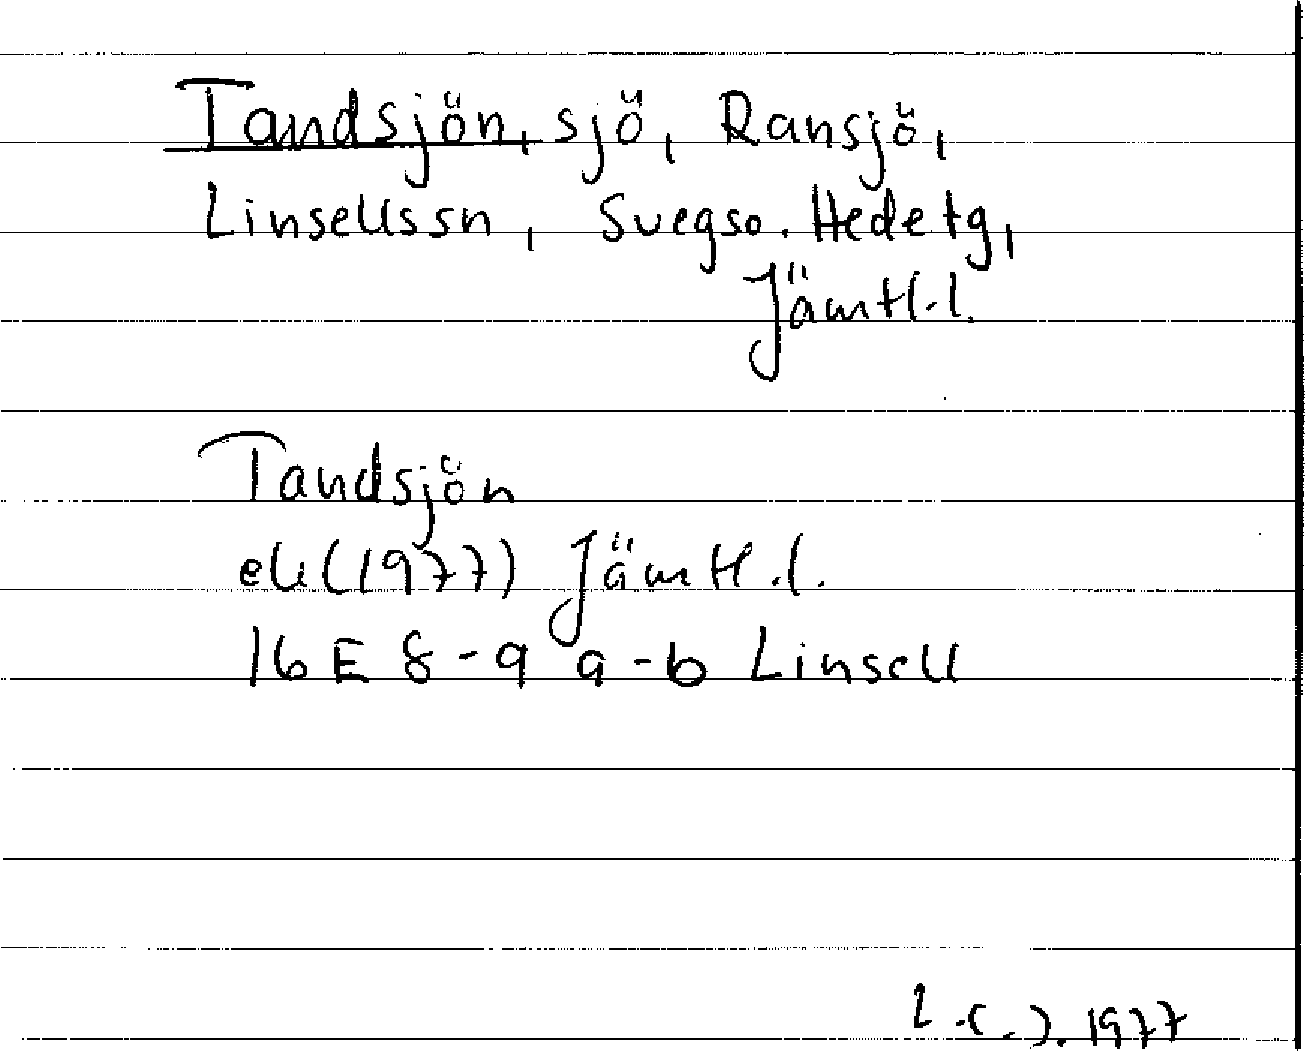 Tandsjön, sjö, Ransjö,
Linsellssn, Svegso. Hedetg,
Jämtl.l.
Tandsjön
ek(1977) Jämtl.l.
16 E 8-9 a-b Linsell
1977